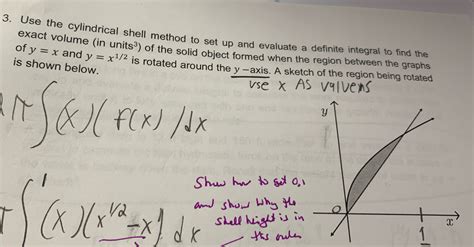 3. Use the cylindrical shell method to set up and evaluate a definite integral to find the
exact volume (in units³) of the solid object formed when the region between the graphs
of y = x and y = x^1/2 is rotated around the y –axis. A sketch of the region being rotated
is shown below.
use x AS
2π ∫(x)( f(x) )dx
y
Show how to get 0,1
and show why the
shell height is in
this order
π ∫ 1 (x)(x^1/2 -x) dx
O
1
x